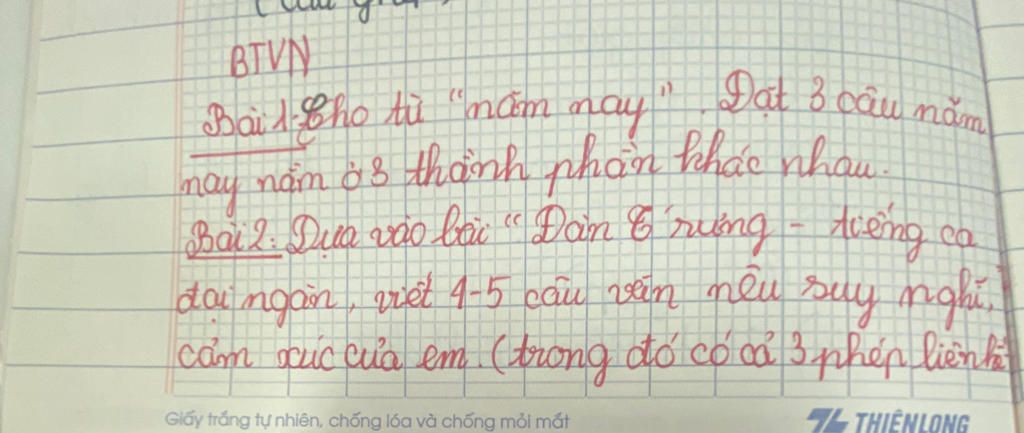 BTVN
Bài 1: Cho từ "năm nay". Đặt 3 câu năm
nay nằm ở 3 thành phần khác nhau.
Bài 2: Dựa vào bài "Đàn t'rưng - tiếng ca
đại ngàn, viết 4-5 câu văn nêu suy nghĩ,
cảm xúc của em. (trong đó có cả 3 phép liên
Giấy trắng tự nhiên, chống lóa và chống mỏi mắt
TL THIÊN LONG